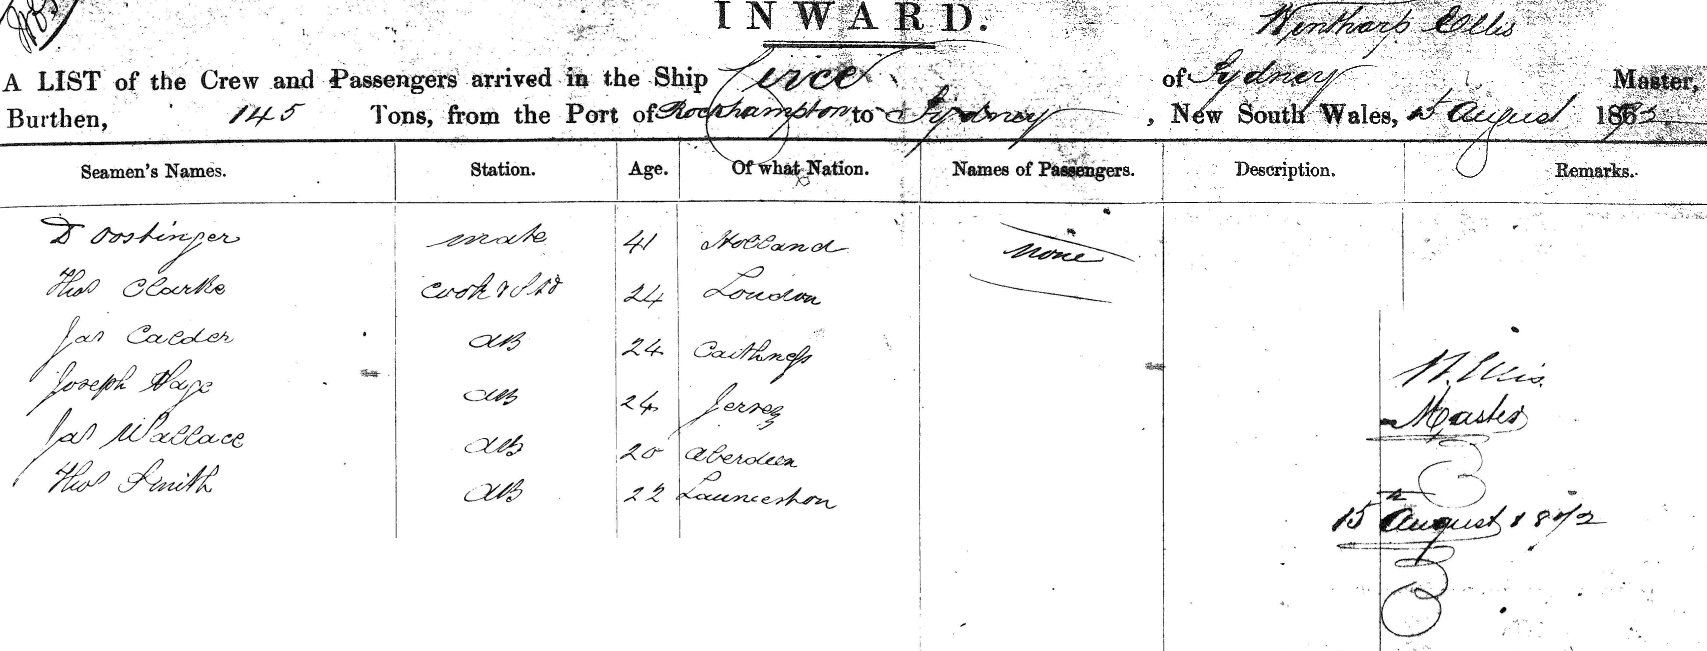 INWARD.
Winthorp Ellis
A LIST of the Crew and Passengers arrived in the Ship Circe of Sydney Master,
Burthen, 145 Tons, from the Port of Rockhampton to Sydney, New South Wales, 15 August 187
Seamen's Names. Station. Age. Of what Nation. Names of Passengers. Description. Remarks.
D Oostinger mate 41 Holland none
Thos Clarke cook & Std 24 London
Jas Calder AB 24 Caithness
Joseph AB 24 Jersey
Jas Wallace AB 20 Aberdeen
Thos Smith AB 22 Launceston
W. Ellis
Master
15th August 1872